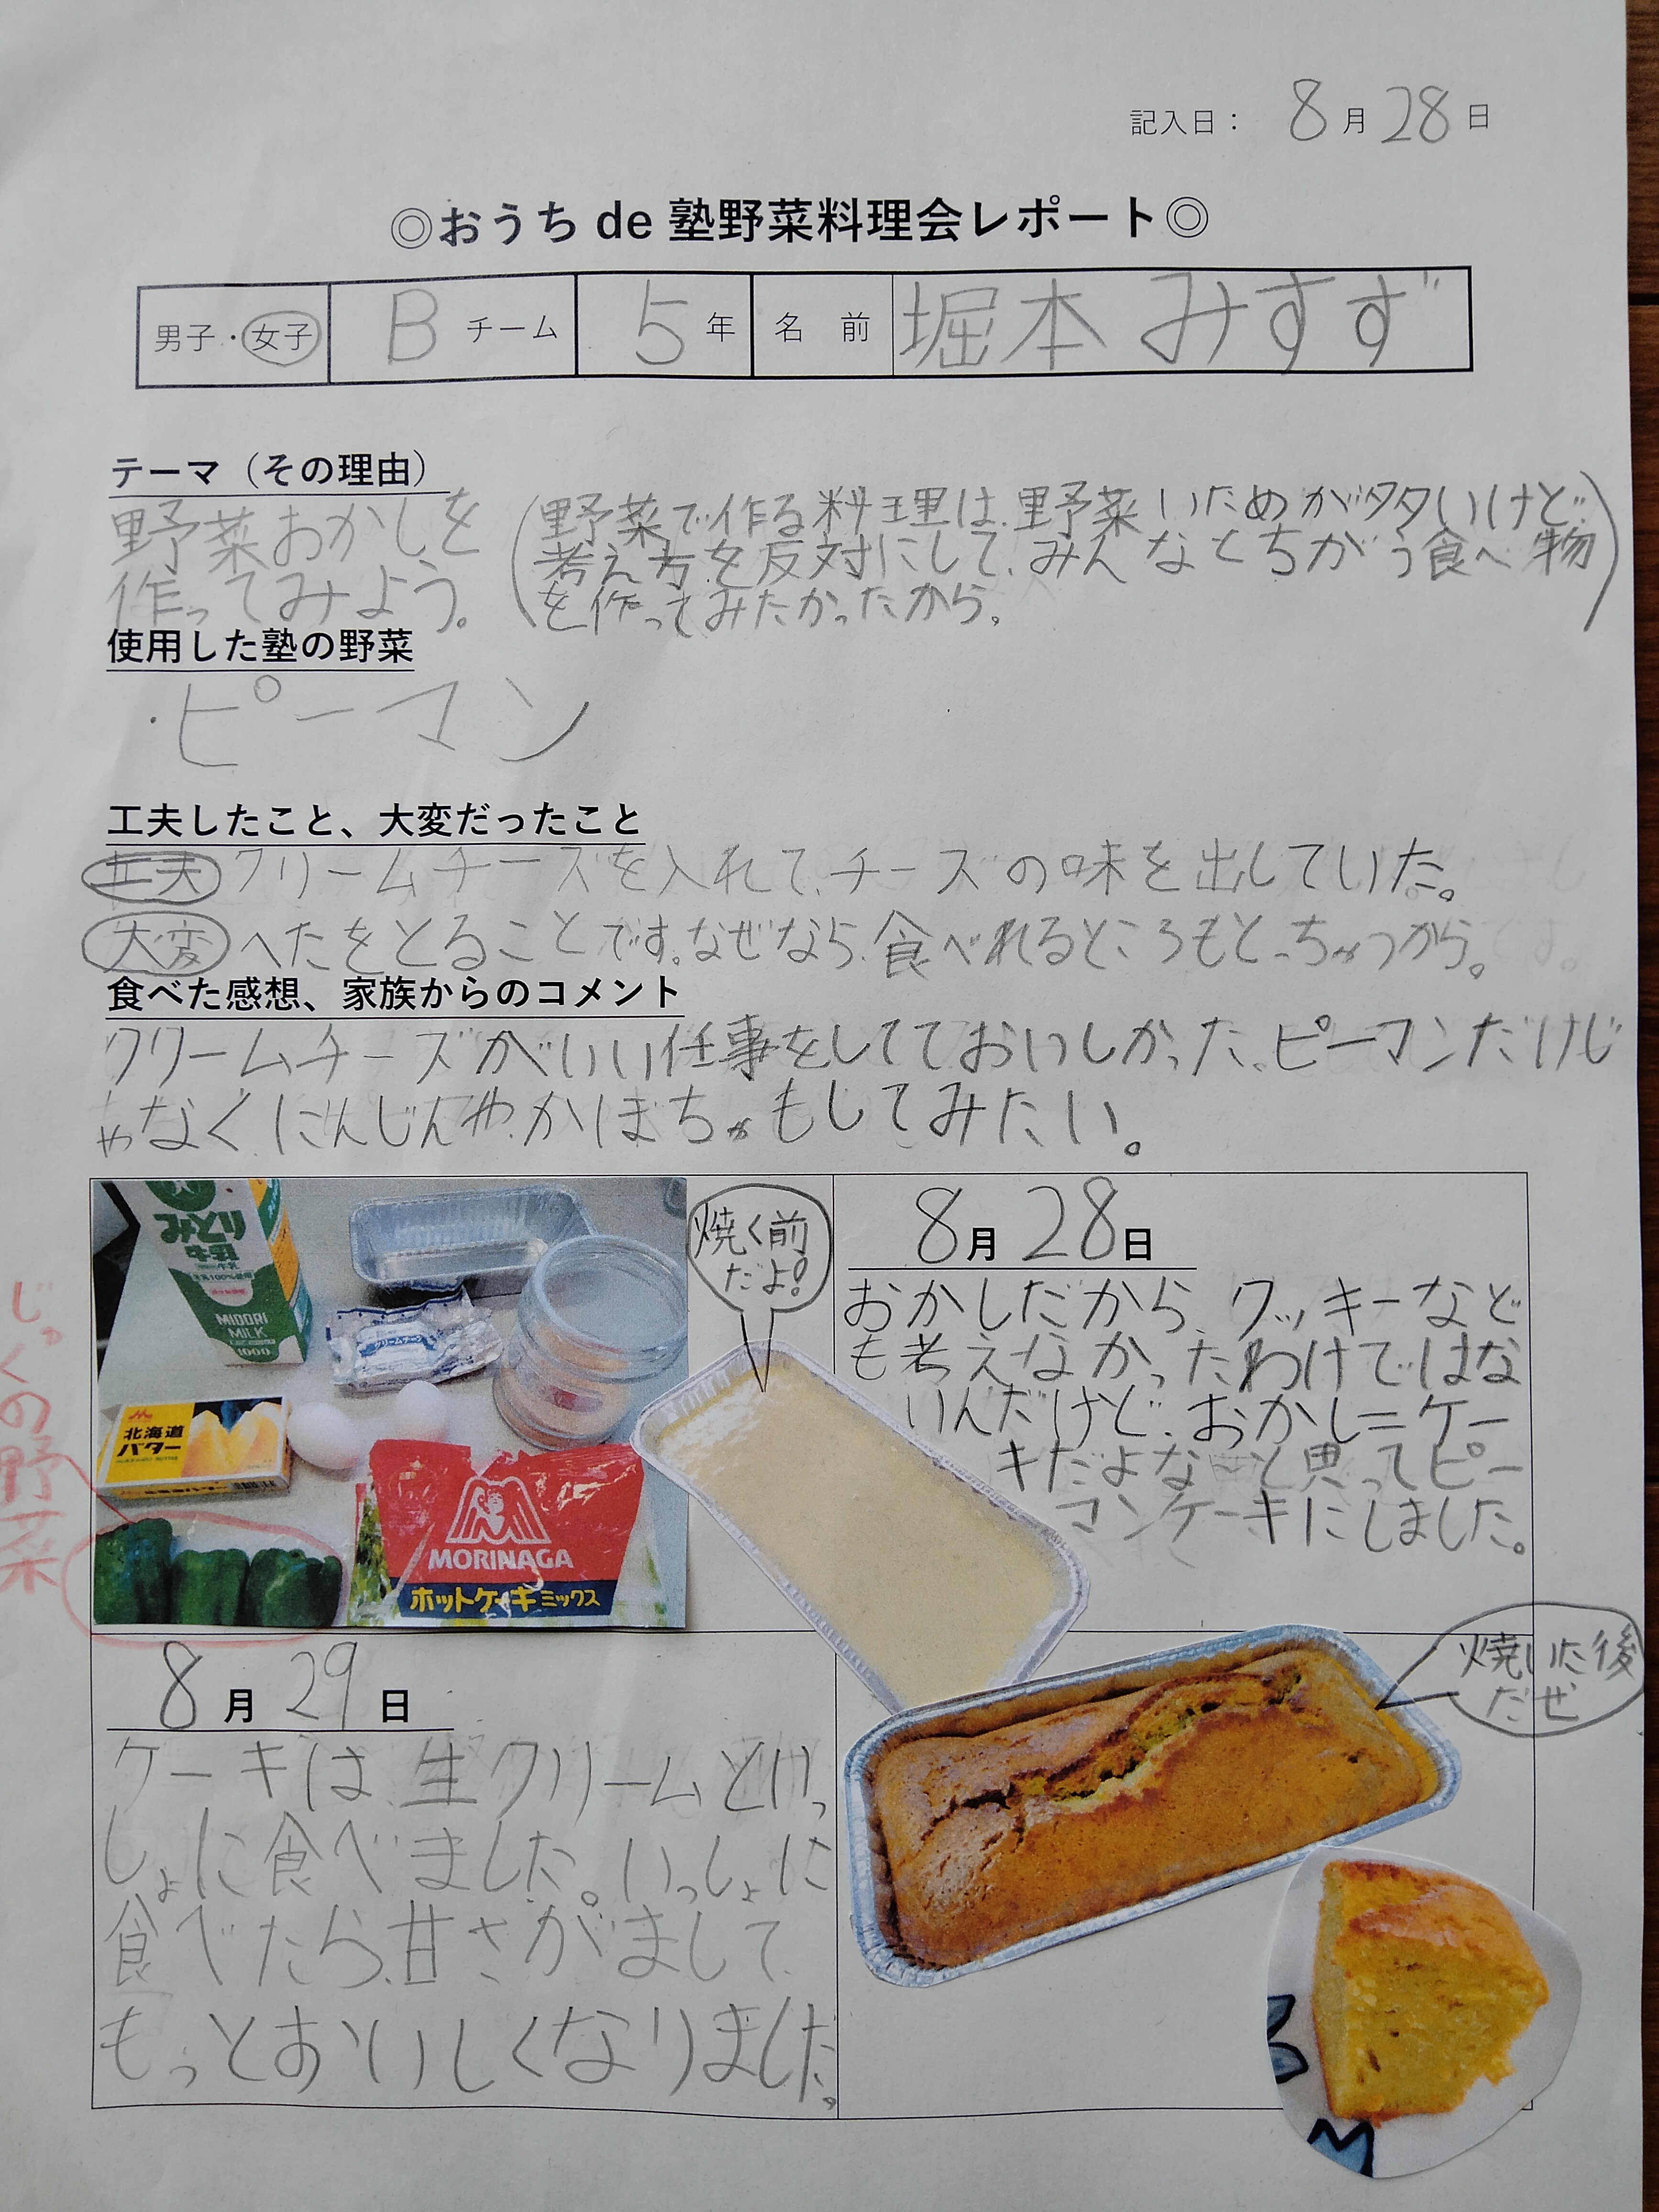 記入日： 8月28日
◎おうち de 塾野菜料理会レポート◎
男子・女子 B チーム 5 年 名 前 堀本 みすず
テーマ（その理由）
野菜おかしを
作ってみよう。
(野菜で作る料理は、野菜いためが多いけど、
考え方を反対にして、みんなとちがう食べ物
を作ってみたかったから。)
使用した塾の野菜
・ピーマン
工夫したこと、大変だったこと
工夫 クリームチーズを入れて、チーズの味を出していた。
大変 へたをとることです。なぜなら、食べれるところもとっちゃうから。
食べた感想、家族からのコメント
クリームチーズがいい仕事をしてておいしかった。ピーマンだけじ
ゃなく、にんじんや、かぼちゃもしてみたい。
みどり
牛乳
MIDORI
MILK
1000
北海道
バター
MORINAGA
ホットケーキミックス
じゅくの野菜
焼く前
だよ!
8月28日
おかしだから、クッキーなど
も考えなかったわけではな
いんだけど、おかし=ケー
キだよな～と思ってピー
マンケーキにしました。
焼いた後
だぜ
8月29日
ケーキは、生クリームといっ
しょに食べました。いっしょに
食べたら、甘さがまして、
もっとおいしくなりました。